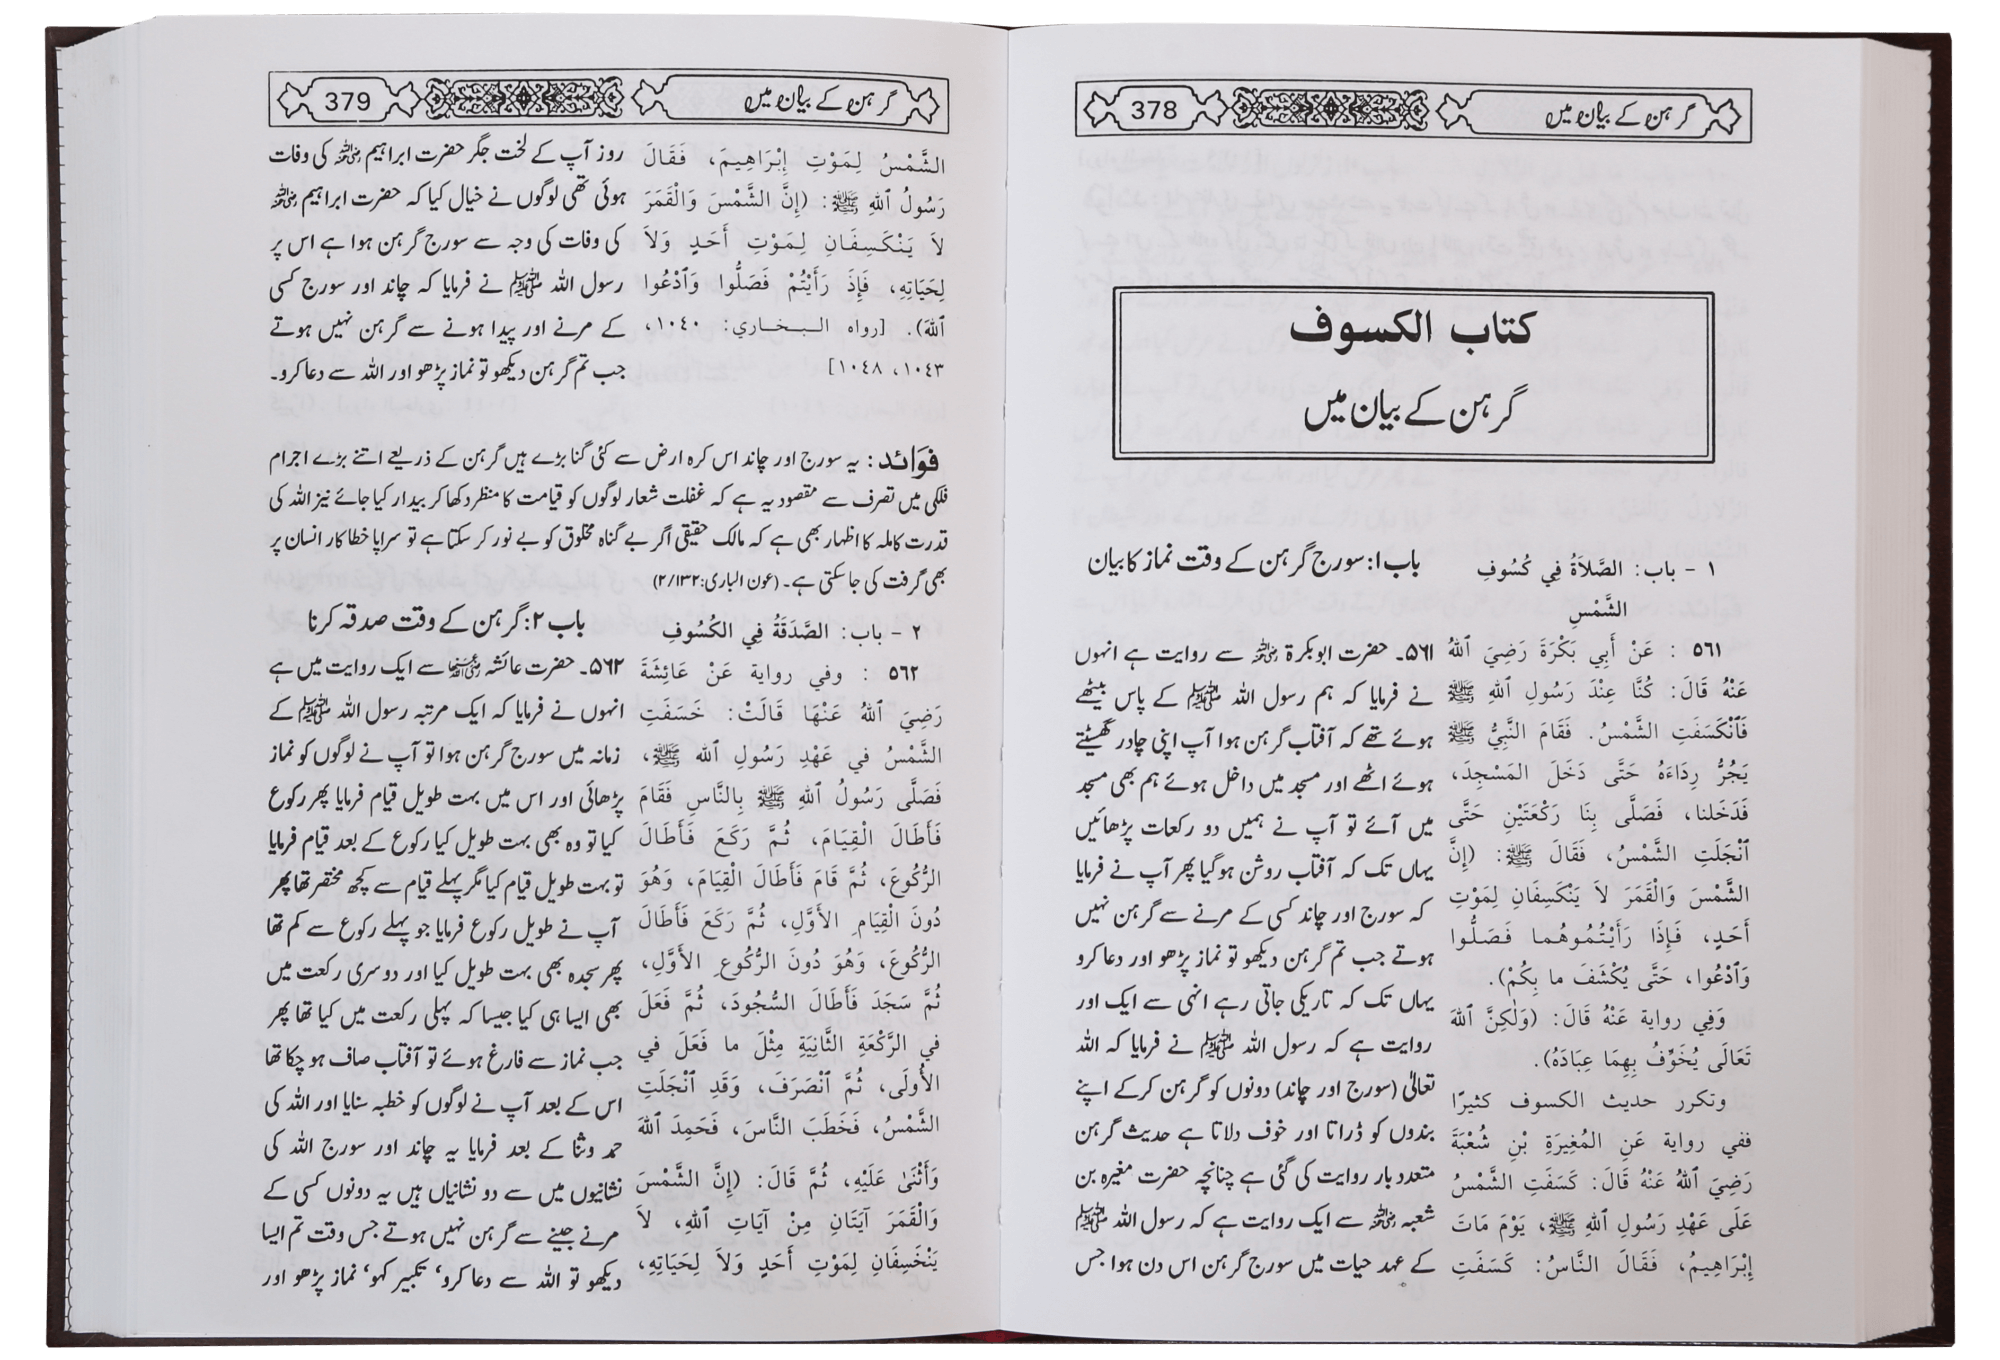 گرہن کے بیان میں
378
کتاب الکسوف
گرہن کے بیان میں
١ - باب: الصَّلاَةُ فِي كُسُوفِ
الشَّمْسِ
٥٦١ : عَنْ أَبِي بَكْرَةَ رَضِيَ ٱللهُ
عَنْهُ قَالَ: كُنَّا عِنْدَ رَسُولِ ٱللهِ ﷺ
فَٱنْكَسَفَتِ الشَّمْسُ. فَقَامَ النَّبِيُّ ﷺ
يَجُرُّ رِدَاءَهُ حَتَّى دَخَلَ المَسْجِدَ،
فَدَخَلنا، فَصَلَّى بِنَا رَكْعَتَيْنِ حَتَّى
ٱنْجَلَتِ الشَّمْسُ، فَقَالَ ﷺ: (إِنَّ
الشَّمْسَ وَالْقَمَرَ لاَ يَنْكَسِفَانِ لِمَوْتِ
أَحَدٍ، فَإِذَا رَأَيْتُمُوهُما فَصَلُّوا
وَٱدْعُوا، حَتَّى يُكْشَفَ ما بِكُمْ).
وَفِي رواية عَنْهُ قَالَ: (وَلٰكِنَّ ٱللهَ
تَعَالَى يُخَوِّفُ بِهِمَا عِبَادَهُ).
وتكرر حديث الكسوف كثيرًا
ففي رواية عَنِ المُغِيرَةِ بْنِ شُعْبَةَ
رَضِيَ ٱللهُ عَنْهُ قَالَ: كَسَفَتِ الشَّمْسُ
عَلَى عَهْدِ رَسُولِ ٱللهِ ﷺ، يَوْمَ مَاتَ
إِبْرَاهِيمُ، فَقَالَ النَّاسُ: كَسَفَتِ
باب ۱: سورج گرہن کے وقت نماز کا بیان
۵۶۱۔ حضرت ابوبکرۃ رضی اللہ عنہ سے روایت ہے انہوں
نے فرمایا کہ ہم رسول اللہ ﷺ کے پاس بیٹھے
ہوئے تھے کہ آفتاب گرہن ہوا آپ اپنی چادر گھسیٹتے
ہوئے اٹھے اور مسجد میں داخل ہوئے ہم بھی مسجد
میں آئے تو آپ نے ہمیں دو رکعات پڑھائیں
یہاں تک کہ آفتاب روشن ہوگیا پھر آپ نے فرمایا
کہ سورج اور چاند کسی کے مرنے سے گرہن نہیں
ہوتے جب تم گرہن دیکھو تو نماز پڑھو اور دعا کرو
یہاں تک کہ تاریکی جاتی رہے انہی سے ایک اور
روایت ہے کہ رسول اللہ ﷺ نے فرمایا کہ اللہ
تعالیٰ (سورج اور چاند) دونوں کو گرہن کرکے اپنے
بندوں کو ڈراتا اور خوف دلاتا ہے حدیث گرہن
متعدد بار روایت کی گئی ہے چنانچہ حضرت مغیرہ بن
شعبہ رضی اللہ عنہ سے ایک روایت ہے کہ رسول اللہ ﷺ
کے عہد حیات میں سورج گرہن اس دن ہوا جس
گرہن کے بیان میں
379
الشَّمْسُ لِمَوْتِ إِبْرَاهِيمَ، فَقَالَ
رَسُولُ ٱللهِ ﷺ: (إِنَّ الشَّمْسَ وَالْقَمَرَ
لاَ يَنْكَسِفَانِ لِمَوْتِ أَحَدٍ وَلاَ
لِحَيَاتِهِ، فَإِذَ رَأَيْتُمْ فَصَلُّوا وَٱدْعُوا
ٱللهَ). [رواه البخاري: ١٠٤٠،
١٠٤٣، ١٠٤٨]
روز آپ کے لخت جگر حضرت ابراہیم رضی اللہ عنہ کی وفات
ہوئی تھی لوگوں نے خیال کیا کہ حضرت ابراہیم رضی اللہ عنہ
کی وفات کی وجہ سے سورج گرہن ہوا ہے اس پر
رسول اللہ ﷺ نے فرمایا کہ چاند اور سورج کسی
کے مرنے اور پیدا ہونے سے گرہن نہیں ہوتے
جب تم گرہن دیکھو تو نماز پڑھو اور اللہ سے دعا کرو۔
فوائد: یہ سورج اور چاند اس کرہ ارض سے کئی گنا بڑے ہیں گرہن کے ذریعے اتنے بڑے اجرام
فلکی میں تصرف سے مقصود یہ ہے کہ غفلت شعار لوگوں کو قیامت کا منظر دکھا کر بیدار کیا جائے نیز اللہ کی
قدرت کاملہ کا اظہار بھی ہے کہ مالک حقیقی اگر بے گناہ مخلوق کو بے نور کر سکتا ہے تو سراپا خطا کار انسان پر
بھی گرفت کی جا سکتی ہے۔ (عون الباری: ۲/۱۳۲)
٢ - باب: الصَّدَقَةُ فِي الكُسُوفِ
٥٦٢ : وفي رواية عَنْ عَائِشَةَ
رَضِيَ ٱللهُ عَنْهَا قَالَتْ: خَسَفَتِ
الشَّمْسُ في عَهْدِ رَسُولِ ٱلله ﷺ،
فَصَلَّى رَسُولُ ٱللهِ ﷺ بِالنَّاسِ فَقَامَ
فَأَطَالَ الْقِيَامَ، ثُمَّ رَكَعَ فَأَطَالَ
الرُّكُوعَ، ثُمَّ قَامَ فَأَطَالَ الْقِيَامَ، وَهُوَ
دُونَ الْقِيَامِ الأَوَّلِ، ثُمَّ رَكَعَ فَأَطَالَ
الرُّكُوعَ، وَهُوَ دُونَ الرُّكُوعِ الأَوَّلِ،
ثُمَّ سَجَدَ فَأَطَالَ السُّجُودَ، ثُمَّ فَعَلَ
في الرَّكْعَةِ الثَّانِيَةِ مِثْلَ ما فَعَلَ في
الأُولَى، ثُمَّ ٱنْصَرَفَ، وَقَدِ ٱنْجَلَتِ
الشَّمْسُ، فَخَطَبَ النَّاسَ، فَحَمِدَ ٱللهَ
وَأَثْنَىٰ عَلَيْهِ، ثُمَّ قَالَ: (إِنَّ الشَّمْسَ
وَالْقَمَرَ آيَتَانِ مِنْ آيَاتِ ٱللهِ، لاَ
يَنْخَسِفَانِ لِمَوْتِ أَحَدٍ وَلاَ لِحَيَاتِهِ،
باب ۲: گرہن کے وقت صدقہ کرنا
۵۶۲۔ حضرت عائشہ رضی اللہ عنہا سے ایک روایت میں ہے
انہوں نے فرمایا کہ ایک مرتبہ رسول اللہ ﷺ کے
زمانہ میں سورج گرہن ہوا تو آپ نے لوگوں کو نماز
پڑھائی اور اس میں بہت طویل قیام فرمایا پھر رکوع
کیا تو وہ بھی بہت طویل کیا رکوع کے بعد قیام فرمایا
تو بہت طویل قیام کیا مگر پہلے قیام سے کچھ مختصر تھا پھر
آپ نے طویل رکوع فرمایا جو پہلے رکوع سے کم تھا
پھر سجدہ بھی بہت طویل کیا اور دوسری رکعت میں
بھی ایسا ہی کیا جیسا کہ پہلی رکعت میں کیا تھا پھر
جب نماز سے فارغ ہوئے تو آفتاب صاف ہو چکا تھا
اس کے بعد آپ نے لوگوں کو خطبہ سنایا اور اللہ کی
حمد وثنا کے بعد فرمایا یہ چاند اور سورج اللہ کی
نشانیوں میں سے دو نشانیاں ہیں یہ دونوں کسی کے
مرنے جینے سے گرہن نہیں ہوتے جس وقت تم ایسا
دیکھو تو اللہ سے دعا کرو‘ تکبیر کہو‘ نماز پڑھو اور